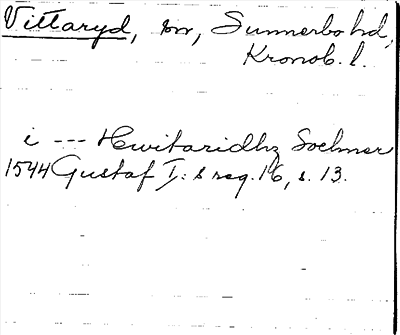 Vittaryd, sn, Sunnerbo hd,
Kronob. l.
i --- Hwitaridhz Sochner
1544 Gustaf I:s reg. 16, s. 13.